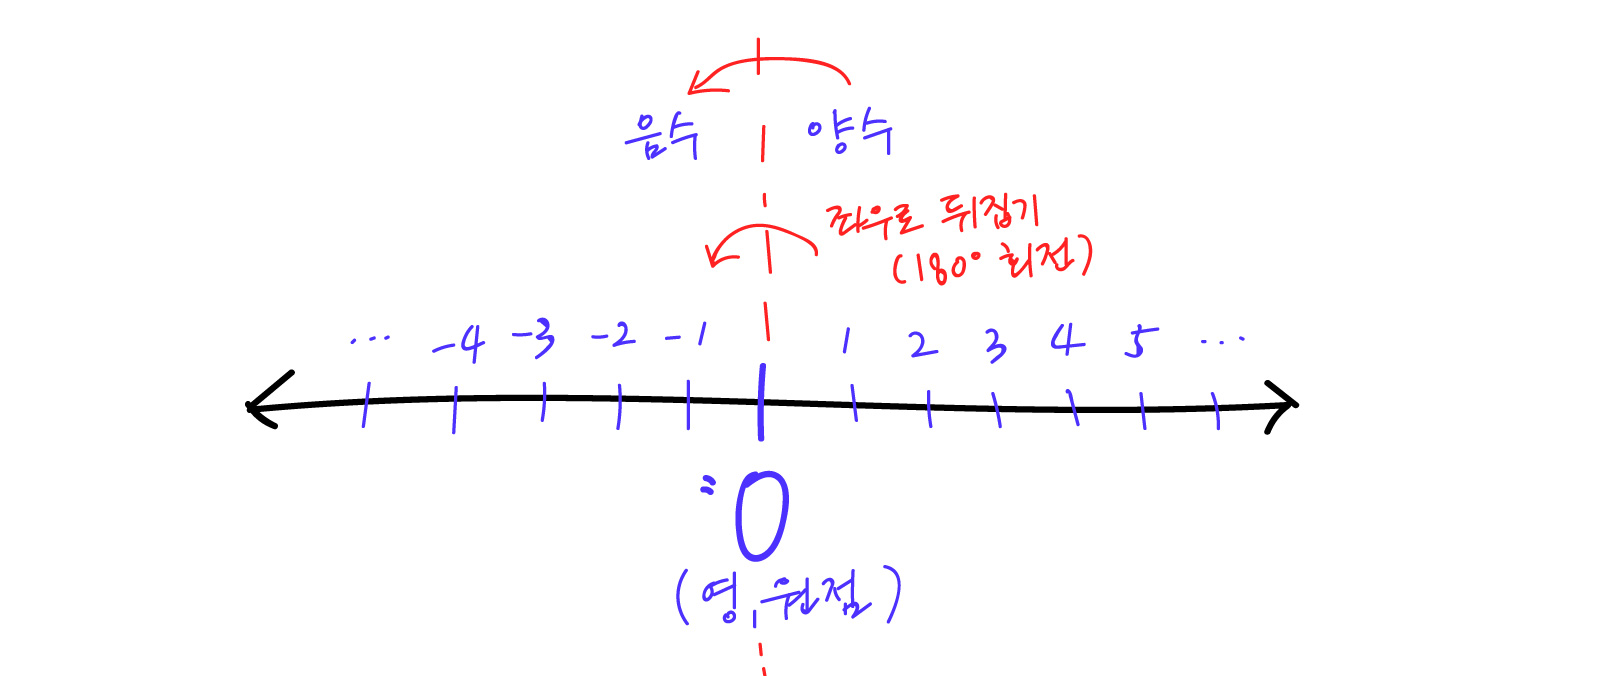 음수 양수
좌우로 뒤집기
(180° 회전)
… -4 -3 -2 -1 1 2 3 4 5 …
0
(영, 원점)